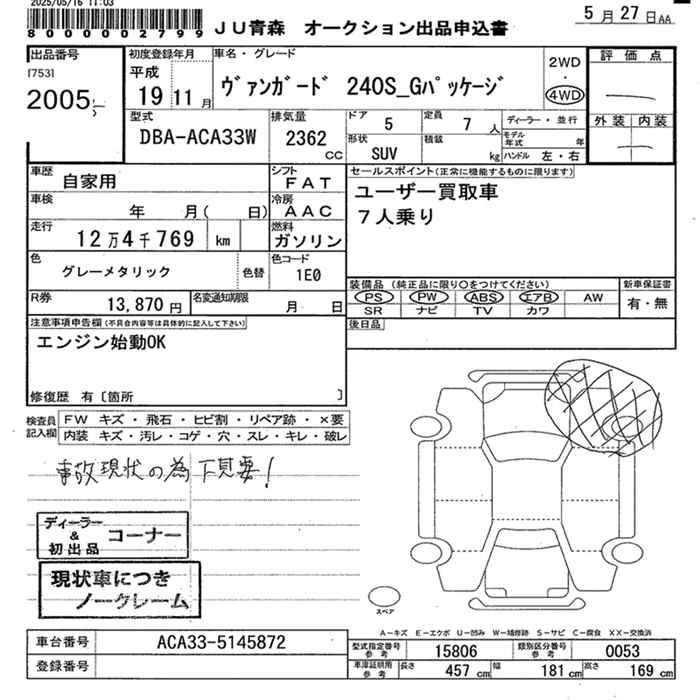 2025/05/16 11:03
8 0 0 0 0 0 2 7 9 9
ＪＵ青森　オークション出品申込書
5 月 27 日 AA
出品番号
17531
2005
初度登録年月
平成
19 11 月
車名・グレード
ヴァンガード 240S_Gパッケージ
2WD
・
4WD
評価点
外装 内装
型式
DBA-ACA33W
排気量
2362
cc
ドア 5
定員 7 人
形状 SUV
積載 kg
ディーラー・並行
モデル年式 年
ハンドル 左・右
車歴 自家用
シフト FAT
車検 年 月( 日)
冷房 AAC
走行 12万4千769 km
燃料 ガソリン
色 グレーメタリック 色替
色コード 1E0
R券 13,870 円
名変通知期限 月 日
セールスポイント(正常に機能するものに限ります)
ユーザー買取車
７人乗り
装備品 (純正品に限り○をつけてください)
新車保証書
PS PW ABS エアB AW
SR ナビ TV カワ
有・無
後日品
注意事項申告欄(不具合内容等は具体的に記入して下さい)
エンジン始動OK
修復歴 有〔箇所 〕
検査員記入欄
FW キズ・飛石・ヒビ割・リペア跡・×要
内装 キズ・汚レ・コゲ・穴・スレ・キレ・破レ
事故現状の為下見要!
ディーラー
&
初出品
コーナー
現状車につき
ノークレーム
スペア
A―キズ E―エクボ U―凹み W―補修跡 S―サビ C―腐食 XX―交換済
車台番号 ACA33-5145872
登録番号
型式指定番号 参考 15806
類別区分番号 参考 0053
車庫証明用 参考 長さ 457 cm 幅 181 cm 高さ 169 cm